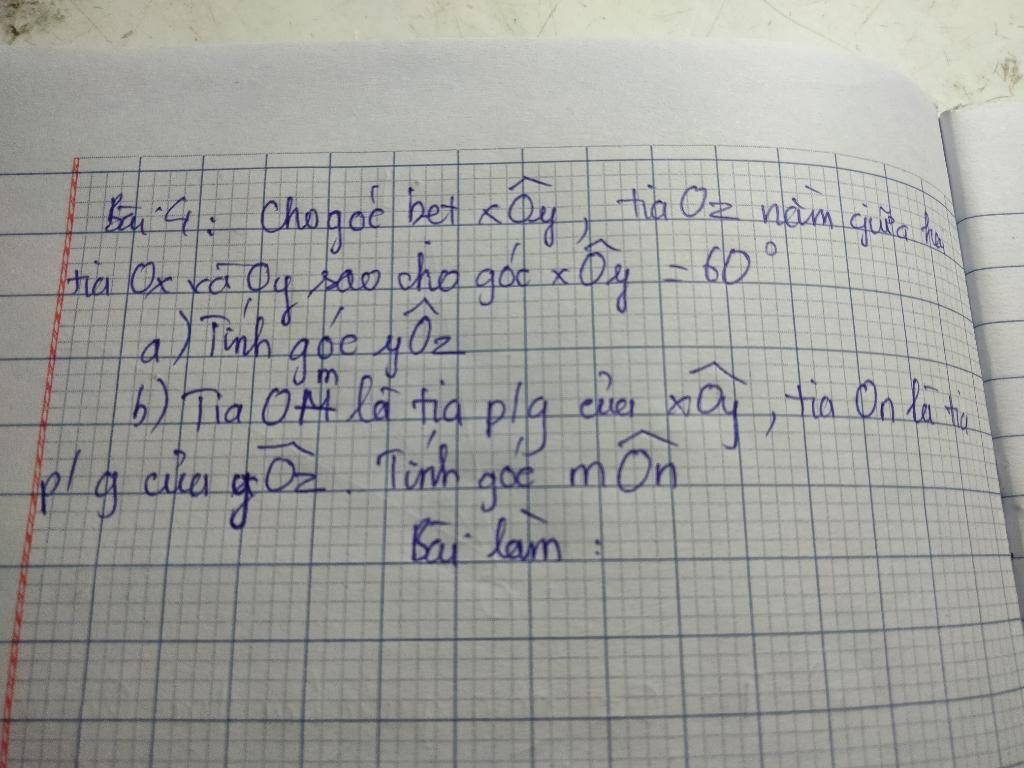 Bài 4: Cho góc bẹt xÔy, tia Oz nằm giữa hai
tia Ox và Oy sao cho góc xÔy = 60°
a) Tính góc yÔz
b) Tia Om là tia p/g của xÔy, tia On là tia
p/g của yÔz. Tính góc mÔn
Bài làm: